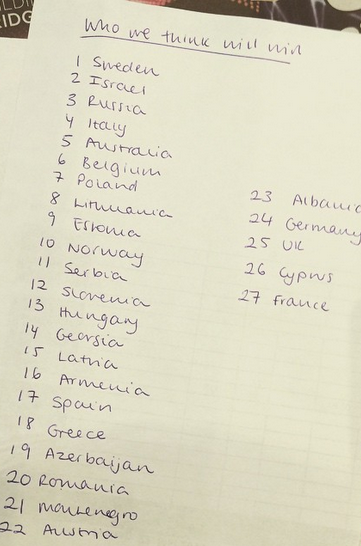 Who we think will win
1 Sweden
2 Israel
3 Russia
4 Italy
5 Australia
6 Belgium
7 Poland
8 Lithuania
9 Estonia
10 Norway
11 Serbia
12 Slovenia
13 Hungary
14 Georgia
15 Latvia
16 Armenia
17 Spain
18 Greece
19 Azerbaijan
20 Romania
21 Montenegro
22 Austria
23 Albania
24 Germany
25 UK
26 Cyprus
27 France